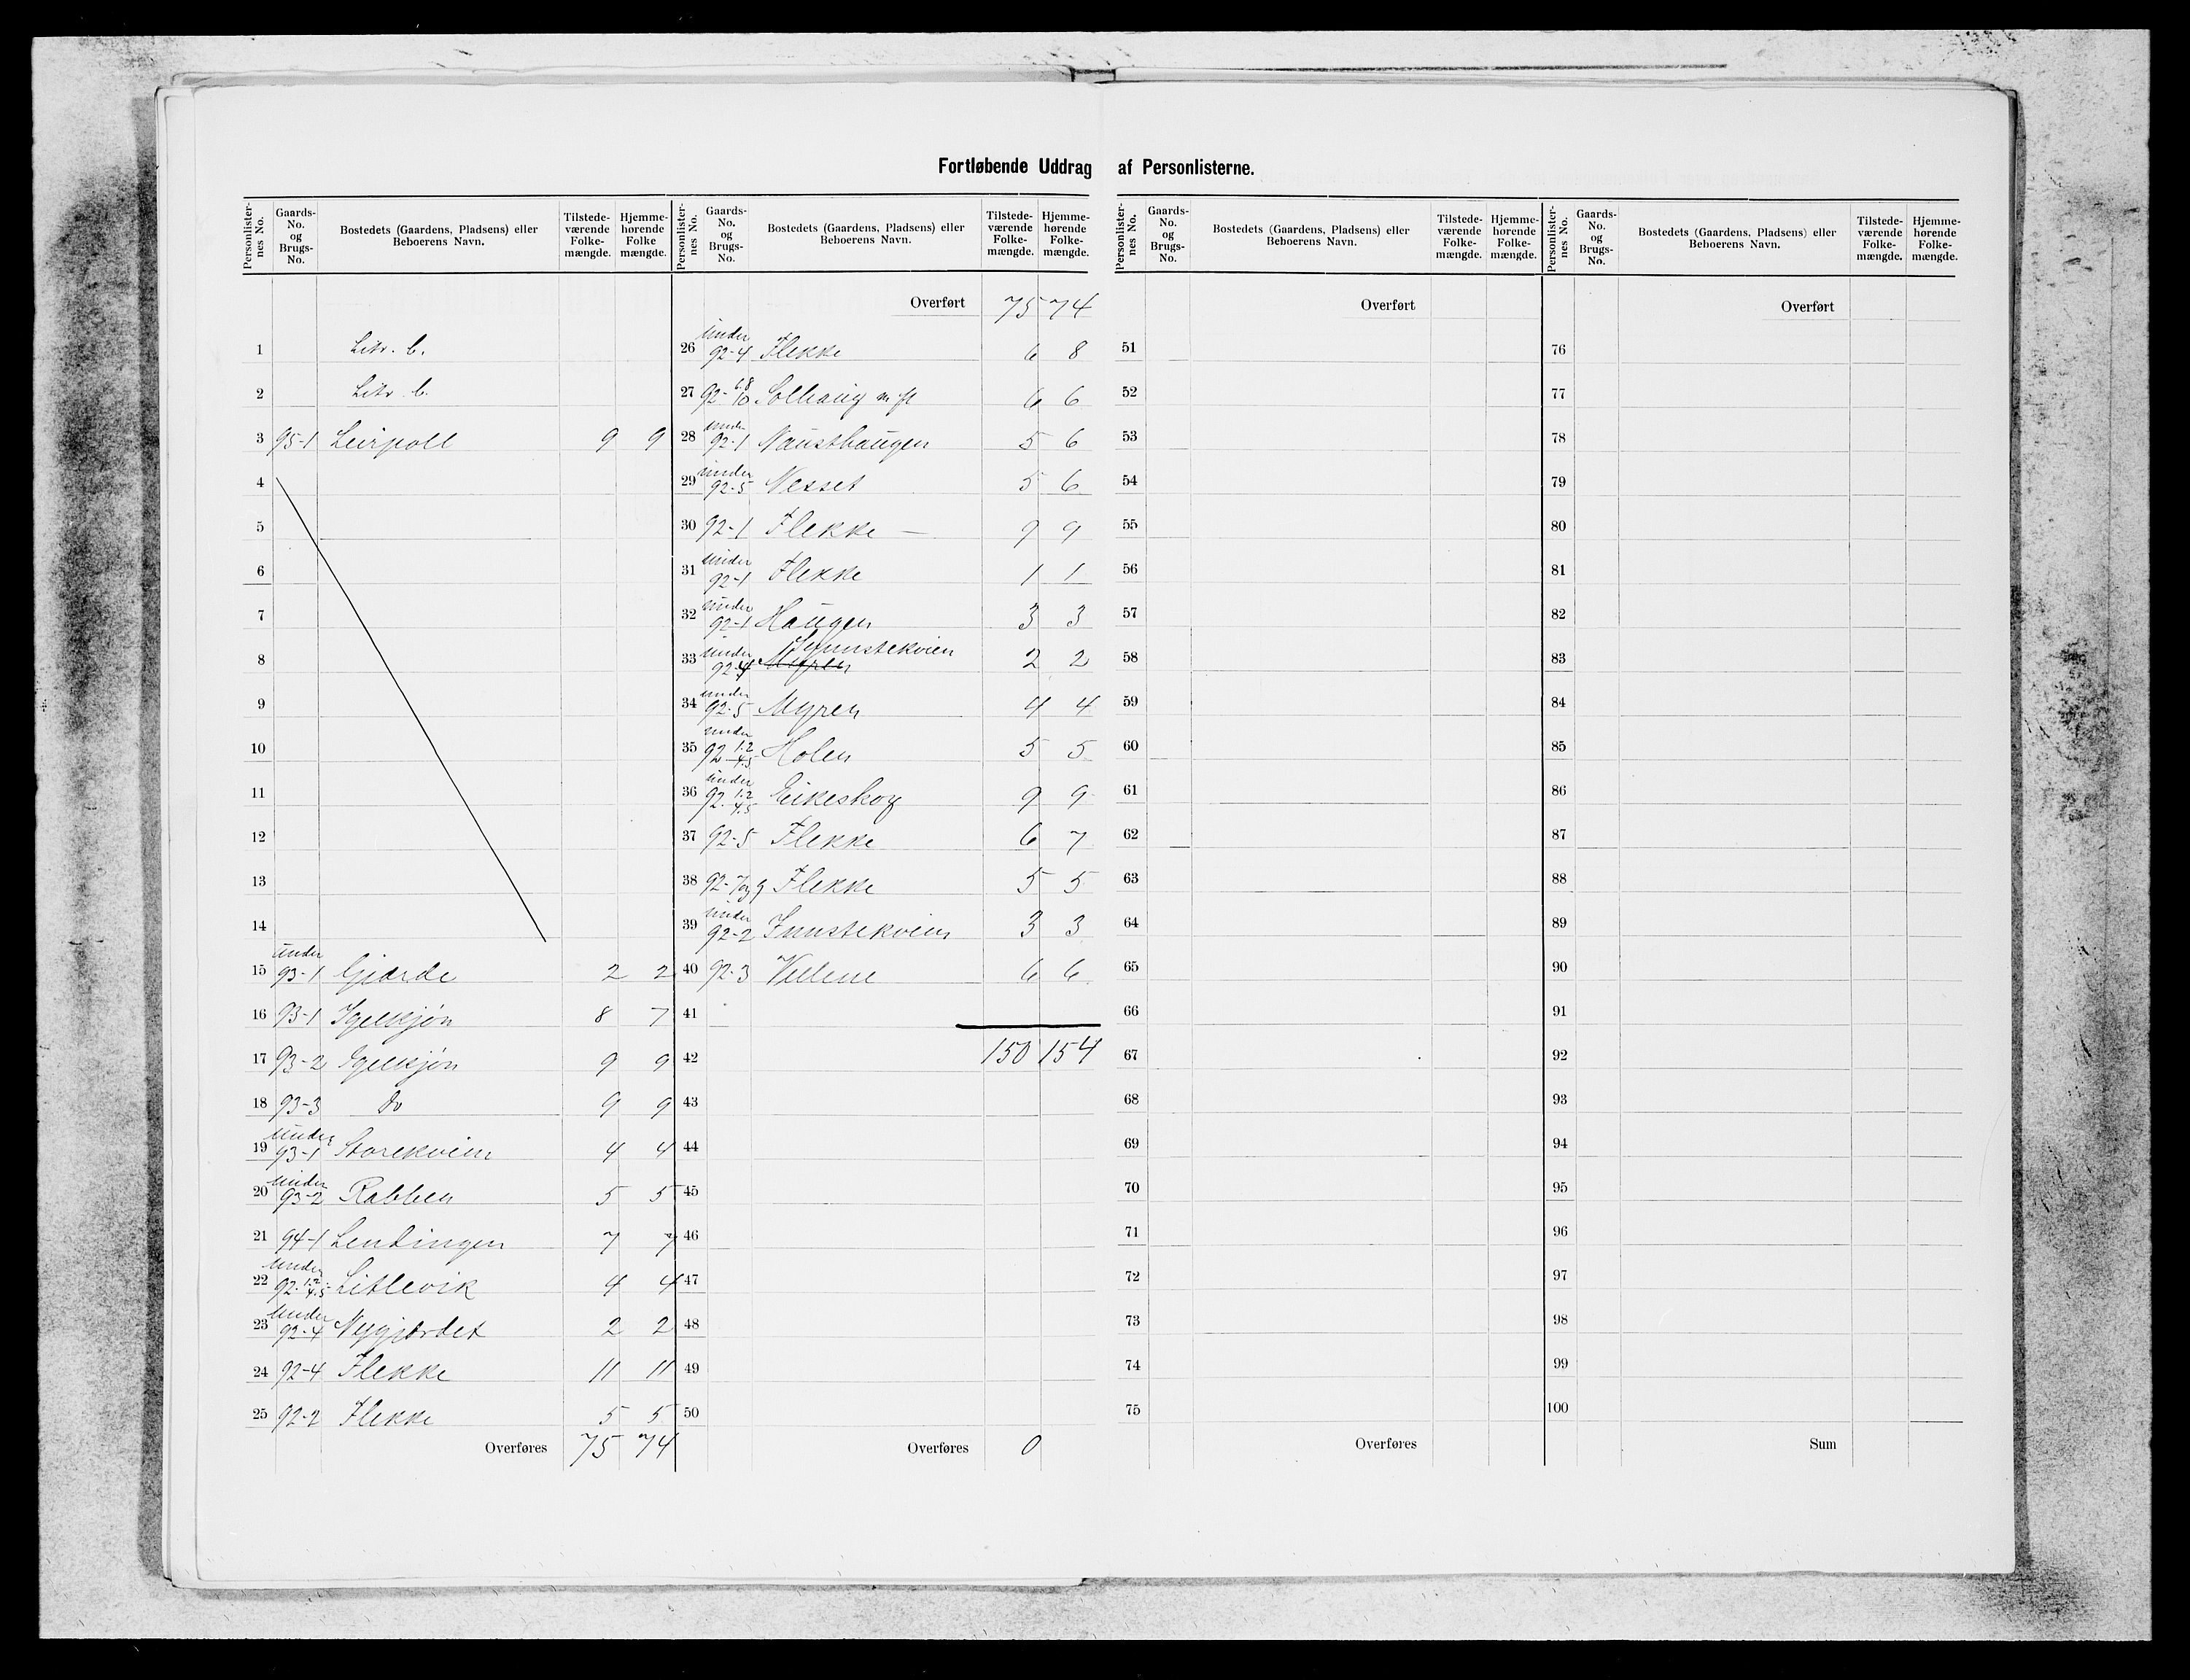 Fortløbende Uddrag af Personlisterne.
Personlister-nes No. Gaards-No. og Brugs-No. Bostedets (Gaardens, Pladsens) eller Beboerens Navn. Tilstede-værende Folke-mængde. Hjemme-hørende Folke mængde.
1 Litr. C.
2 Litr C.
3 95-1 Leirpoll 9 9
4
5
6
7
8
9
10
11
12
13
14
15 under 93-1 Gjærde 2 2
16 93-1 Igelkjøn 8 7
17 93-2 Igelkjøn 9 9
18 93-3 do 9 9
19 under 93-1 Storekvien 4 4
20 under 93-2 Rabben 5 5
21 94-1 Lendingen 7 7
22 under 92. 1.2 4.5 Litlevik 4 4
23 under 92-4 Nygjærdet 2 2
24 92-4 Flekke 11 11
25 92-2 Flekke 5 5
Overføres 75 74
Personlister-nes No. Gaards-No. og Brugs-No. Bostedets (Gaardens, Pladsens) eller Beboerens Navn. Tilstede-værende Folke-mængde. Hjemme-hørende Folke-mængde.
Overført 75 74
26 under 92-4 Flekke 6 8
27 92- 6.8 10 Solhaug m fl 6 6
28 under 92-1 Nausthaugen 5 6
29 under 92-5 Nesset 5 6
30 92-1 Flekke — 9 9
31 under 92-1 Flekke 1 1
32 under 92-1 Haugen 3 3
33 under 92-4 Myren 2 2
34 under 92-5 Myren 4 4
35 under 92 1.2 4.5 Holen 5 5
36 under 92. 1.2 4.5 Eikeskog 9 9
37 92-5 Flekke 6 7
38 92-7 og 9 Flekke 5 5
39 under 92-2 Innstekvien 3 3
40 92-3 6 6
41
42 150 154
43
44
45
46
47
48
49
50
Overføres 0
Personlister-nes No. Gaards-No. og Brugs-No. Bostedets (Gaardens, Pladsens) eller Beboerens Navn. Tilstede-værende Folke-mængde. Hjemme-hørende Folke-mængde.
Overført
51
52
53
54
55
56
57
58
59
60
61
62
63
64
65
66
67
68
69
70
71
72
73
74
75
Overføres
Personlister-nes No. Gaards-No. og Brugs-No. Bostedets (Gaardens, Pladsens) eller Beboerens Navn. Tilstede-værende Folke-mængde. Hjemme-hørende Folke-mængde.
Overført
76
77
78
79
80
81
82
83
84
85
86
87
88
89
90
91
92
93
94
95
96
97
98
99
100
Sum